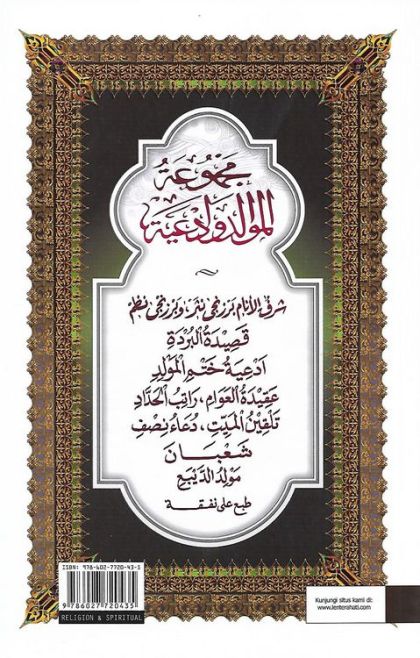 مجموعة
الموالد وأدعية
شرف الأنام، برزنجي نثر، وبرزنجي نظم
قَصِيْدَةُ الْبُرْدَةِ
اَدْعِيَةُ خَتْمِ الْمَوْلِدِ
عَقِيْدَةُ الْعَوَامِ، رَاتِبُ الْحَدَّادِ
تَلْقِيْنُ الْمَيِّتِ، دُعَاءُ نِصْفِ
شَعْبَانَ
مَوْلِدُ الدَّيْبَعِ
طبع على نفقة
ISBN: 978-602-7720-43-5
9 786027 720435
RELIGION & SPIRITUAL
Kunjungi situs kami di:
www.lenterahati.com